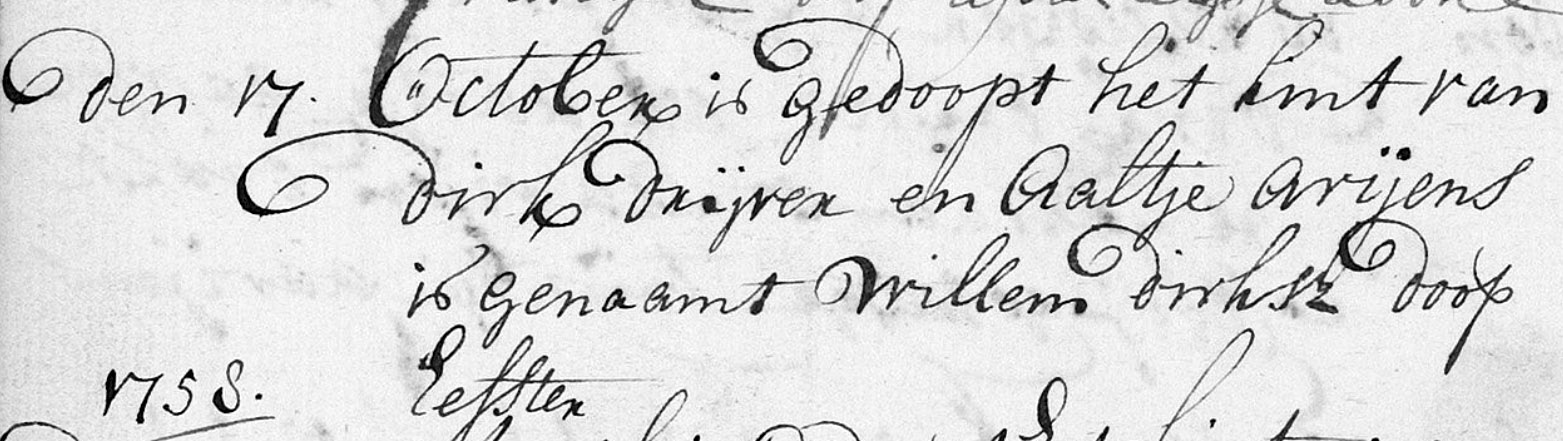 den 17. October is gedoopt het kint van
dirk drijver en Aaltje Arijens
is genaamt willem dirksz doop
1758. heffster